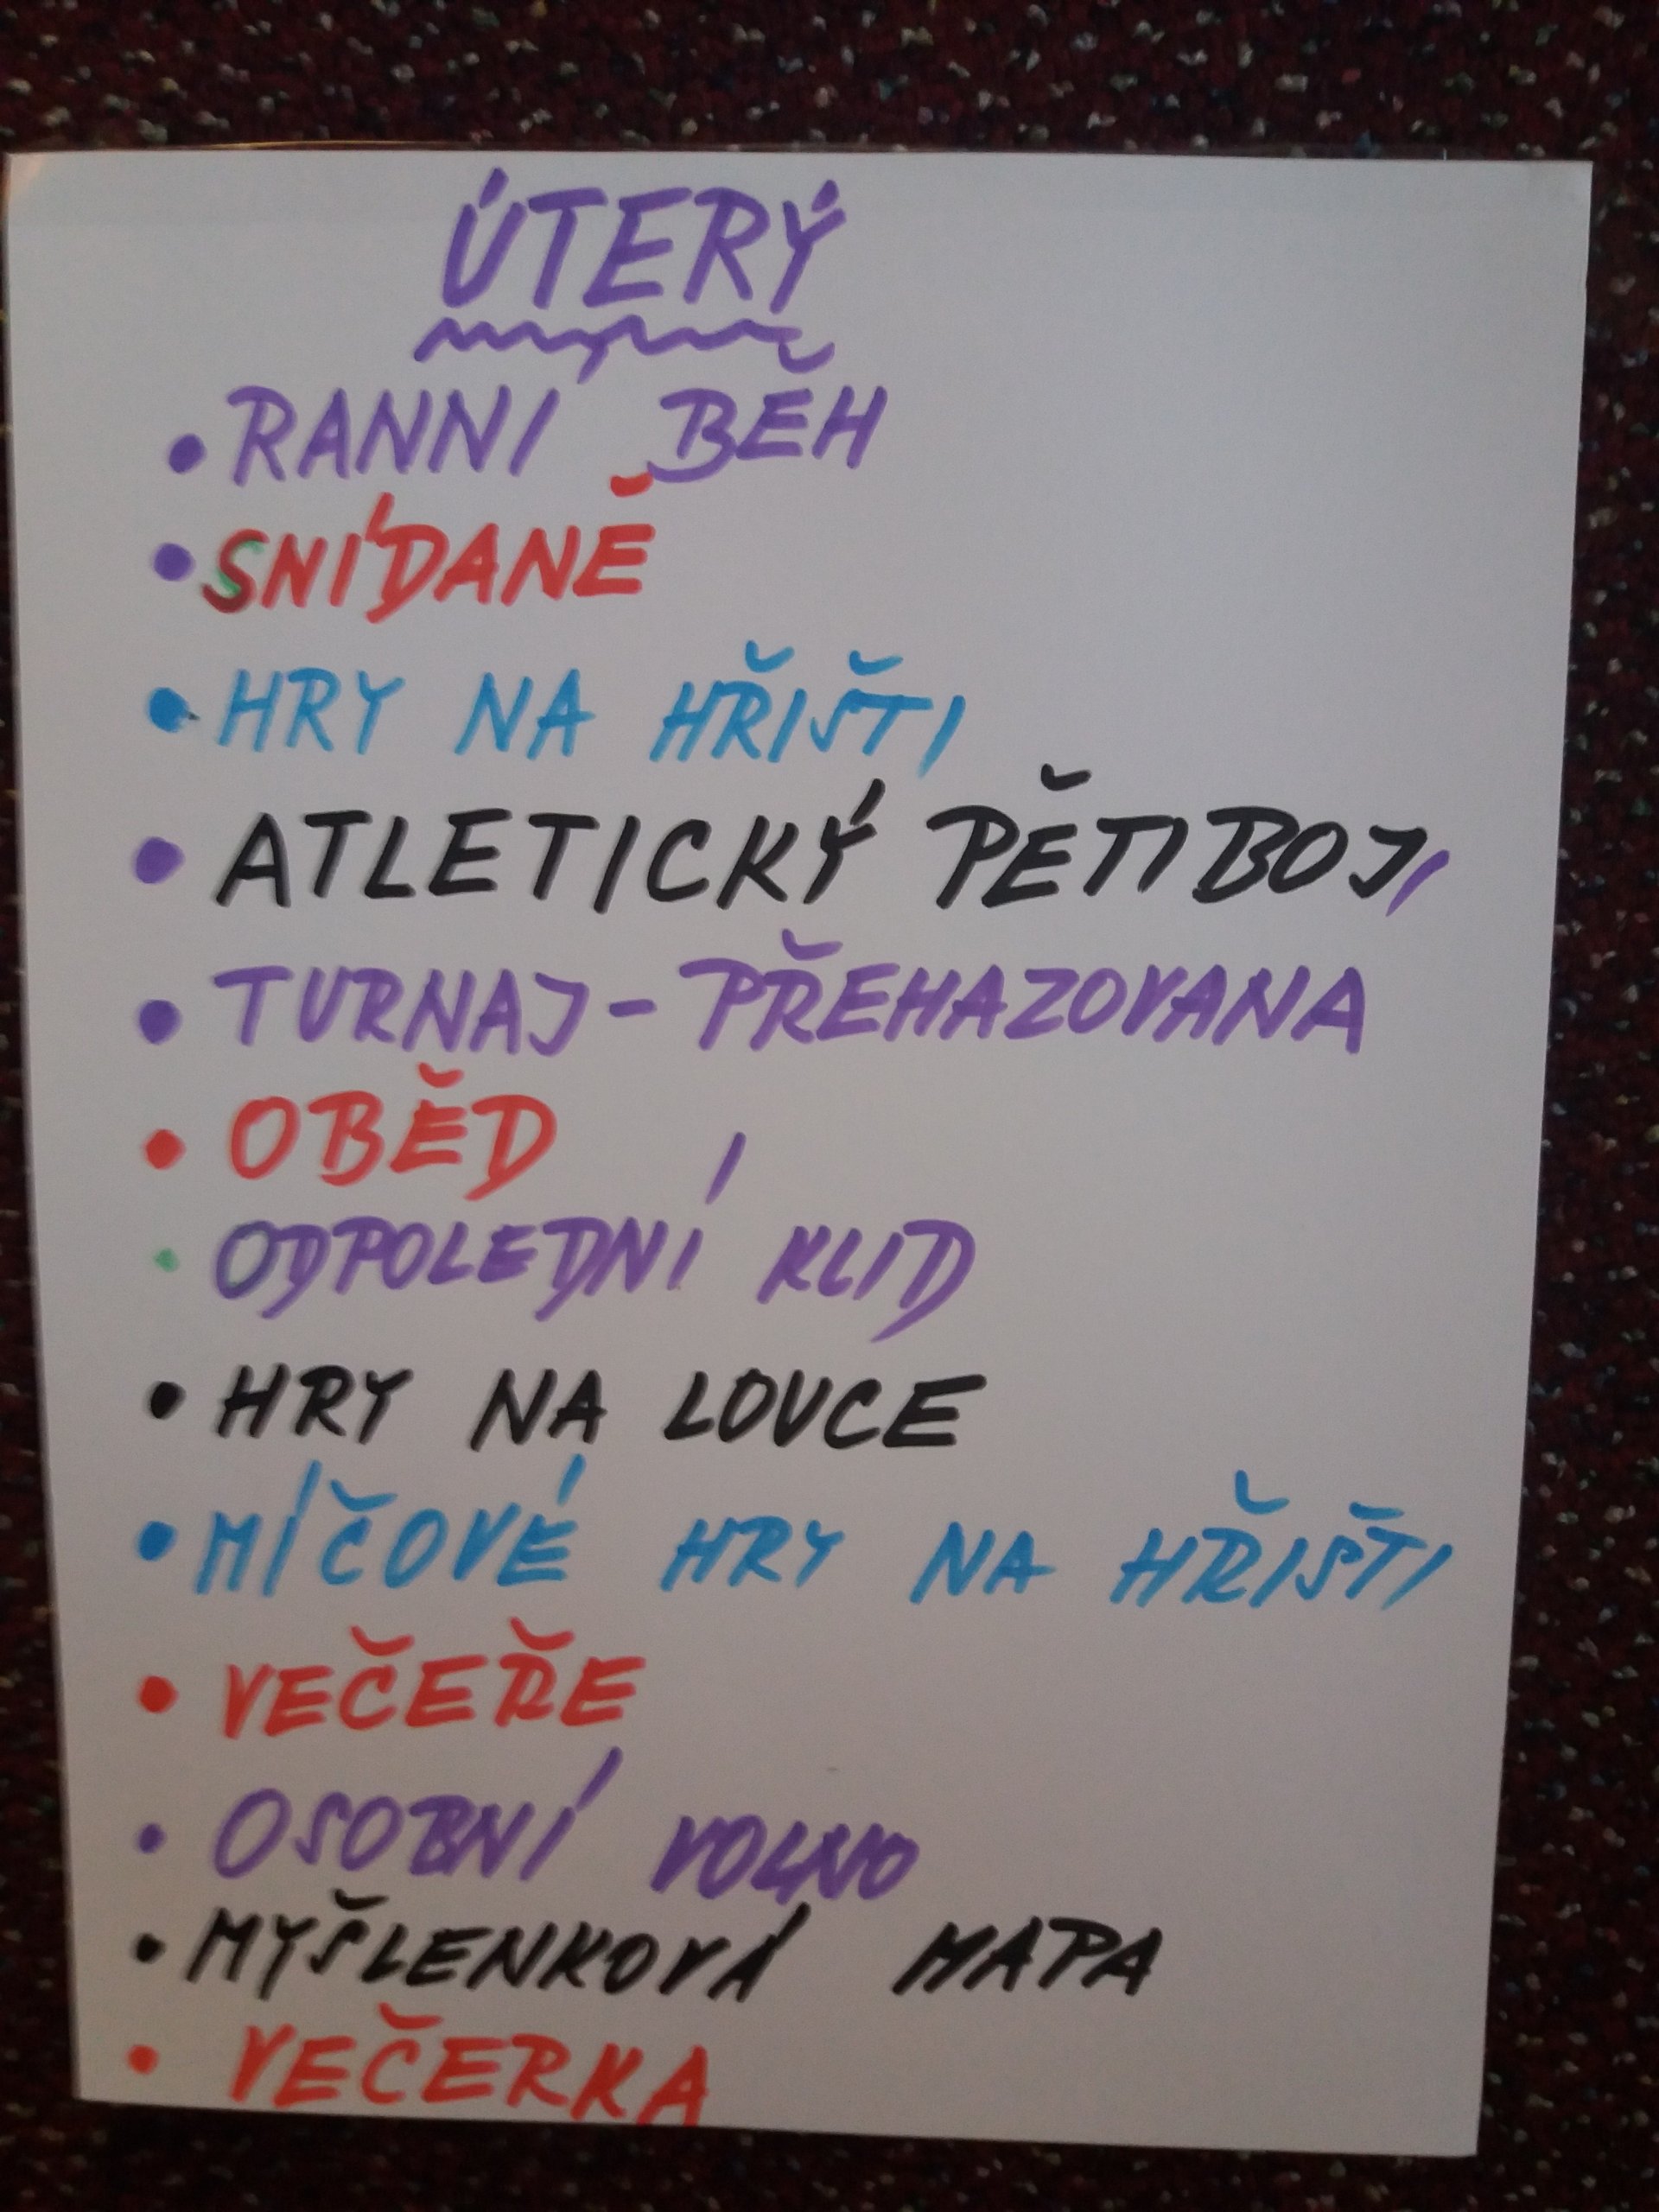 ÚTERÝ
• RANNÍ BĚH
• SNÍDANĚ
• HRY NA HŘIŠTI
• ATLETICKÝ PĚTIBOJ,
• TURNAJ - PŘEHAZOVANA
• OBĚD
• ODPOLEDNÍ KLID
• HRY NA LOUCE
• MÍČOVÉ HRY NA HŘIŠTI
• VEČEŘE
• OSOBNÍ VOLNO
• MYŠLENKOVÁ MAPA
• VEČERKA